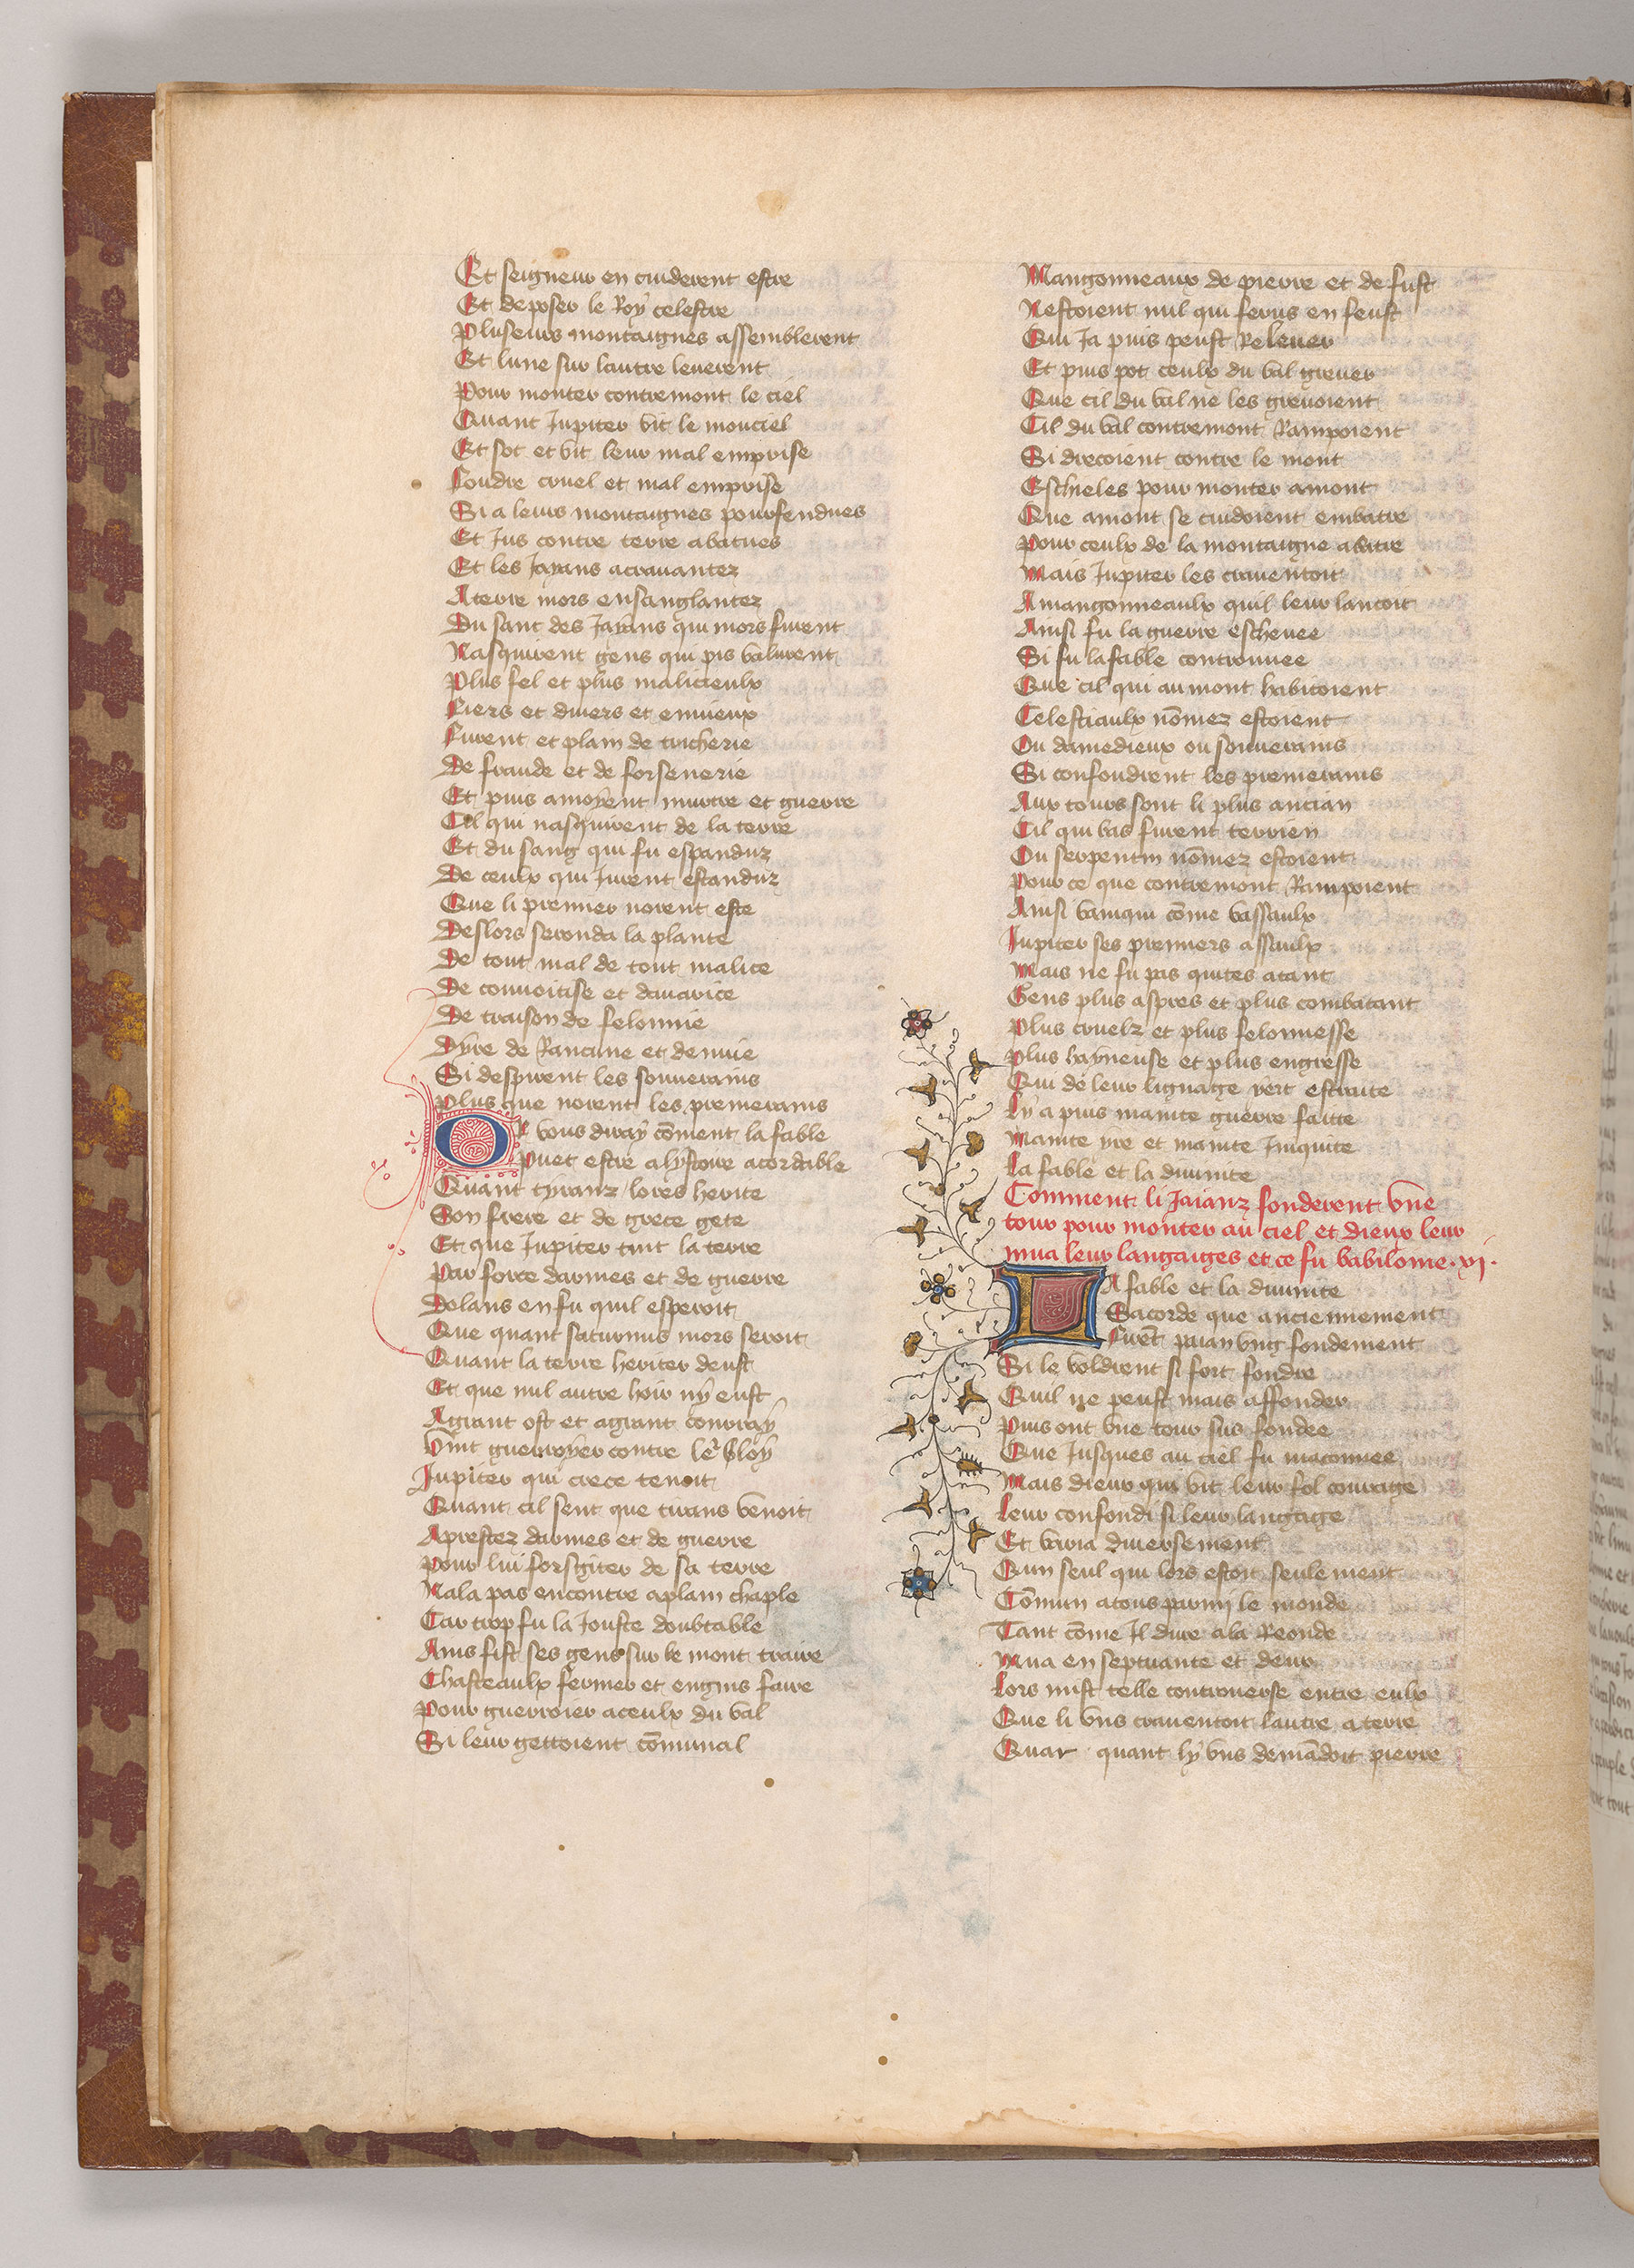 Et seigneur en cuiderent estre
Et deposer le Roy celestre
Pluseurs montaignes assemblerent
Et lune sur lautre leuerent
Pour monter contremont le ciel
Quant Jupiter vit le monciel
Et sot et vit leur mal emprise
Foudre cruel et mal emprise
Si a leurs montaignes pourfendues
Et Jus contre terre abatues
Et les Jayans acrauantez
A terre mors ensanglantez
Du sanc des Jaians qui mors furent
Nasquirent gens qui pis valurent
Plus fel et plus malicieulx
Fiers et diuers et enuieux
Furent et plain de tricherie
De fraude et de forsenerie
Et puis amoyent murtre et guerre
Cil qui nasquirent de la terre
Et du sang qui fu espanduz
De ceulx qui furent estanduz
Que li premier norent este
Deslors seconda la plante
De tout mal de tout malice
De conuoitise et dauarice
De traison de felonnie
Dyre de Rancune et denuie
Si despirent les souuerains
Plus que norent les premerains
Or vous diray coment la fable
Puet estre a lystoire acordable
Quant tyranz lores herite
Son frere et de grece gete
Et que Jupiter tint la terre
Par force darmes et de guerre
Dolans en fu quil esperoit
Que quant saturnus mors seroit
Quant la terre heriter deust
Et que nul autre hoir ny eust
A grant ost et a grant conrray
Vint guerroyer contre le Roy
Jupiter qui crece tenoit
Quant cil sent que tirans venoit
Aprestez darmes et de guerre
Pour lui forsgiter de sa terre
Nala pas encontre a plain chaple
Car trop fu la Jouste doubtable
Ains fist ses gens sur le mont traire
Chasteaulx fermer et engins faire
Pour guerroier a ceulx du val
Si leur gettoient comunal
Mangonneaux de pierre et de fust
Nestoient nul qui ferus en feust
Qui Ja puis peust Releuer
Et puis pot ceulx du val greuer
Que cil du val ne les greuoient
Cil du val contremont Rampoient
Si drecoient contre le mont
Eschieles pour monter amont
Que amont se cuidoient embatre
Pour ceulx de la montaigne abatre
Mais Jupiter les crauentoit
A mangonneaulx quil leur lancoit
Ainsi fu la guerre escheuee
Si fu la fable controuuee
Que cil qui au mont habitoient
Celestiaulx nomez estoient
Ou damedieux ou souuerains
Si confondirent les premerains
Aux tours sont li plus ancian
Cil qui bas furent terrien
Ou serpentin nomez estoient
Pour ce que contremont Rampoient
Ainsi vainqui come vassaulx
Jupiter ses premiers assaulx
Mais ne fu pas quites atant
Gens plus aspres et plus combatant
Plus cruelz et plus felonnesse
Plus hayneuse et plus engresse
Qui de leur lignage yert estraite
Ly a puis mainte guerre faitte
Mainte yre et mainte Iniquite
La fable et la diuinite
Comment li Jaianz fonderent vne
tour pour monter au ciel et dieux leur
mua leur langaiges et ce fu babilonie .xj.
La fable et la diuinite
Sacorde que anciennement
Furet paian vng fondement
Si le voldrent si fort fondre
Quil ne peust mais affonder
Puis ont vne tour sus fondee
Que Jusques au ciel fu maconnee
Mais dieux qui vit leur fol courage
Leur confondi si leur langage
Et varia diuersement
Qun seul qui lors estoit seulement
Comun a tous parmy le monde
Tant come Il dure a la Reonde
Mua en septuante et deux
Lors mist telle controuerse entre eulx
Que li vns crauentoit lautre a terre
Quar quant ly vns demadoit pierre